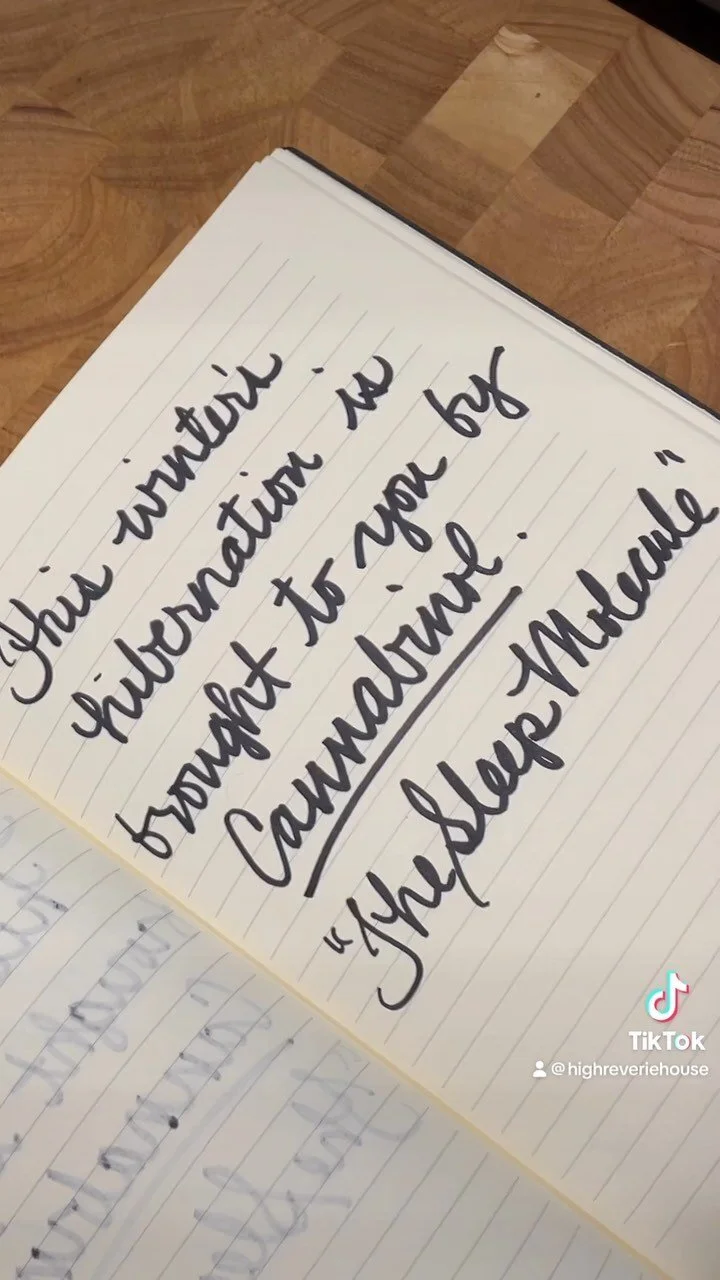 This winter's
hibernation is
brought to you by
Cannabinol.
"The Sleep Molecule"
TikTok
@highreveriehouse